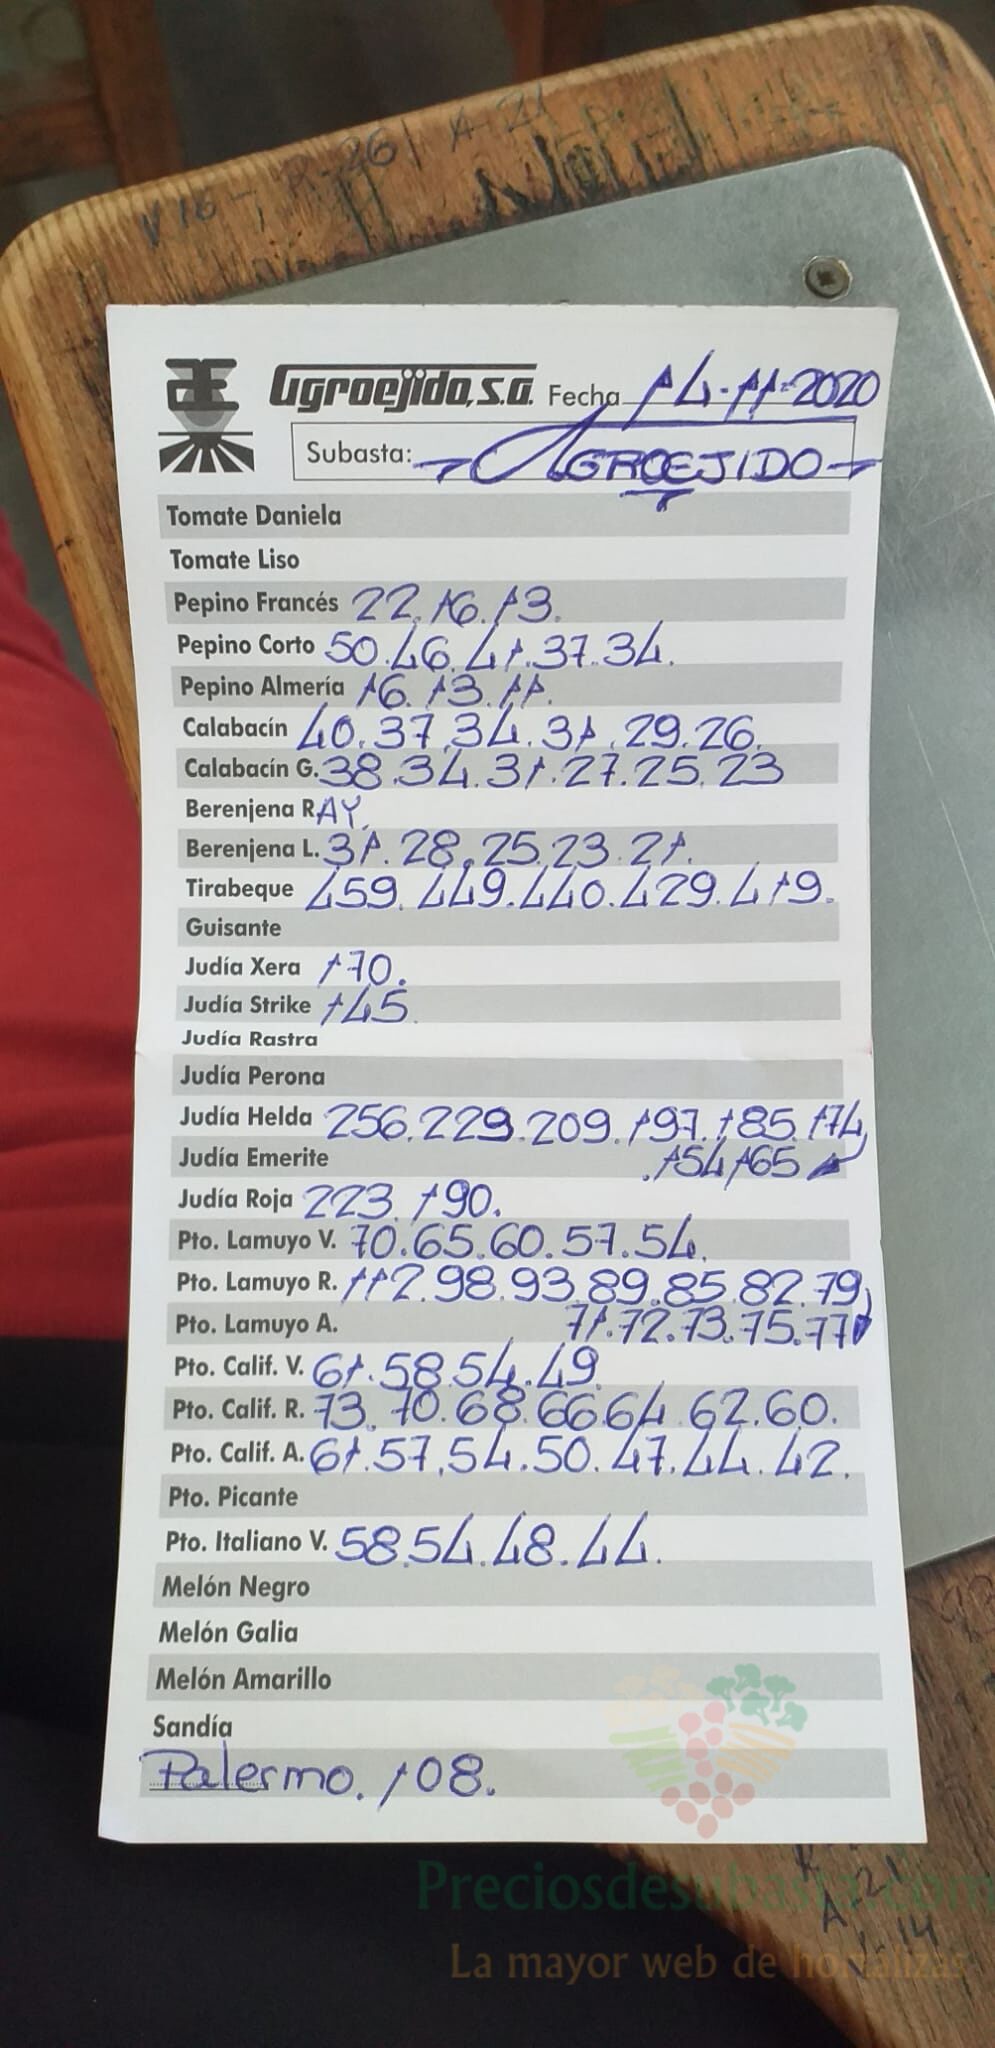 V16 - R-26 | A-21
Agroejido, s.a. Fecha 14-11-2020
Subasta: AGROEJIDO
Tomate Daniela
Tomate Liso
Pepino Francés 22.16.13.
Pepino Corto 50.46.41.37.34.
Pepino Almería 16.13.11.
Calabacín 40.37.34.31.29.26.
Calabacín G. 38.34.31.27.25.23
Berenjena RAY.
Berenjena L. 31.28.25.23.21.
Tirabeque 459.449.440.429.419.
Guisante
Judía Xera 170.
Judía Strike 145.
Judía Rastra
Judía Perona
Judía Helda 256.229.209.197.185.174
Judía Emerite .154.165
Judía Roja 223.190.
Pto. Lamuyo V. 70.65.60.57.54.
Pto. Lamuyo R. 112.98.93.89.85.82.79
Pto. Lamuyo A. 71.72.73.75.77
Pto. Calif. V. 61.58.54.49
Pto. Calif. R. 73.70.68.66.64.62.60.
Pto. Calif. A. 61.57.54.50.47.44.42.
Pto. Picante
Pto. Italiano V. 58.54.48.44.
Melón Negro
Melón Galia
Melón Amarillo
Sandía
Palermo. 108.
Preciosdesubasta.com
A-21
14
La mayor web de hortalizas